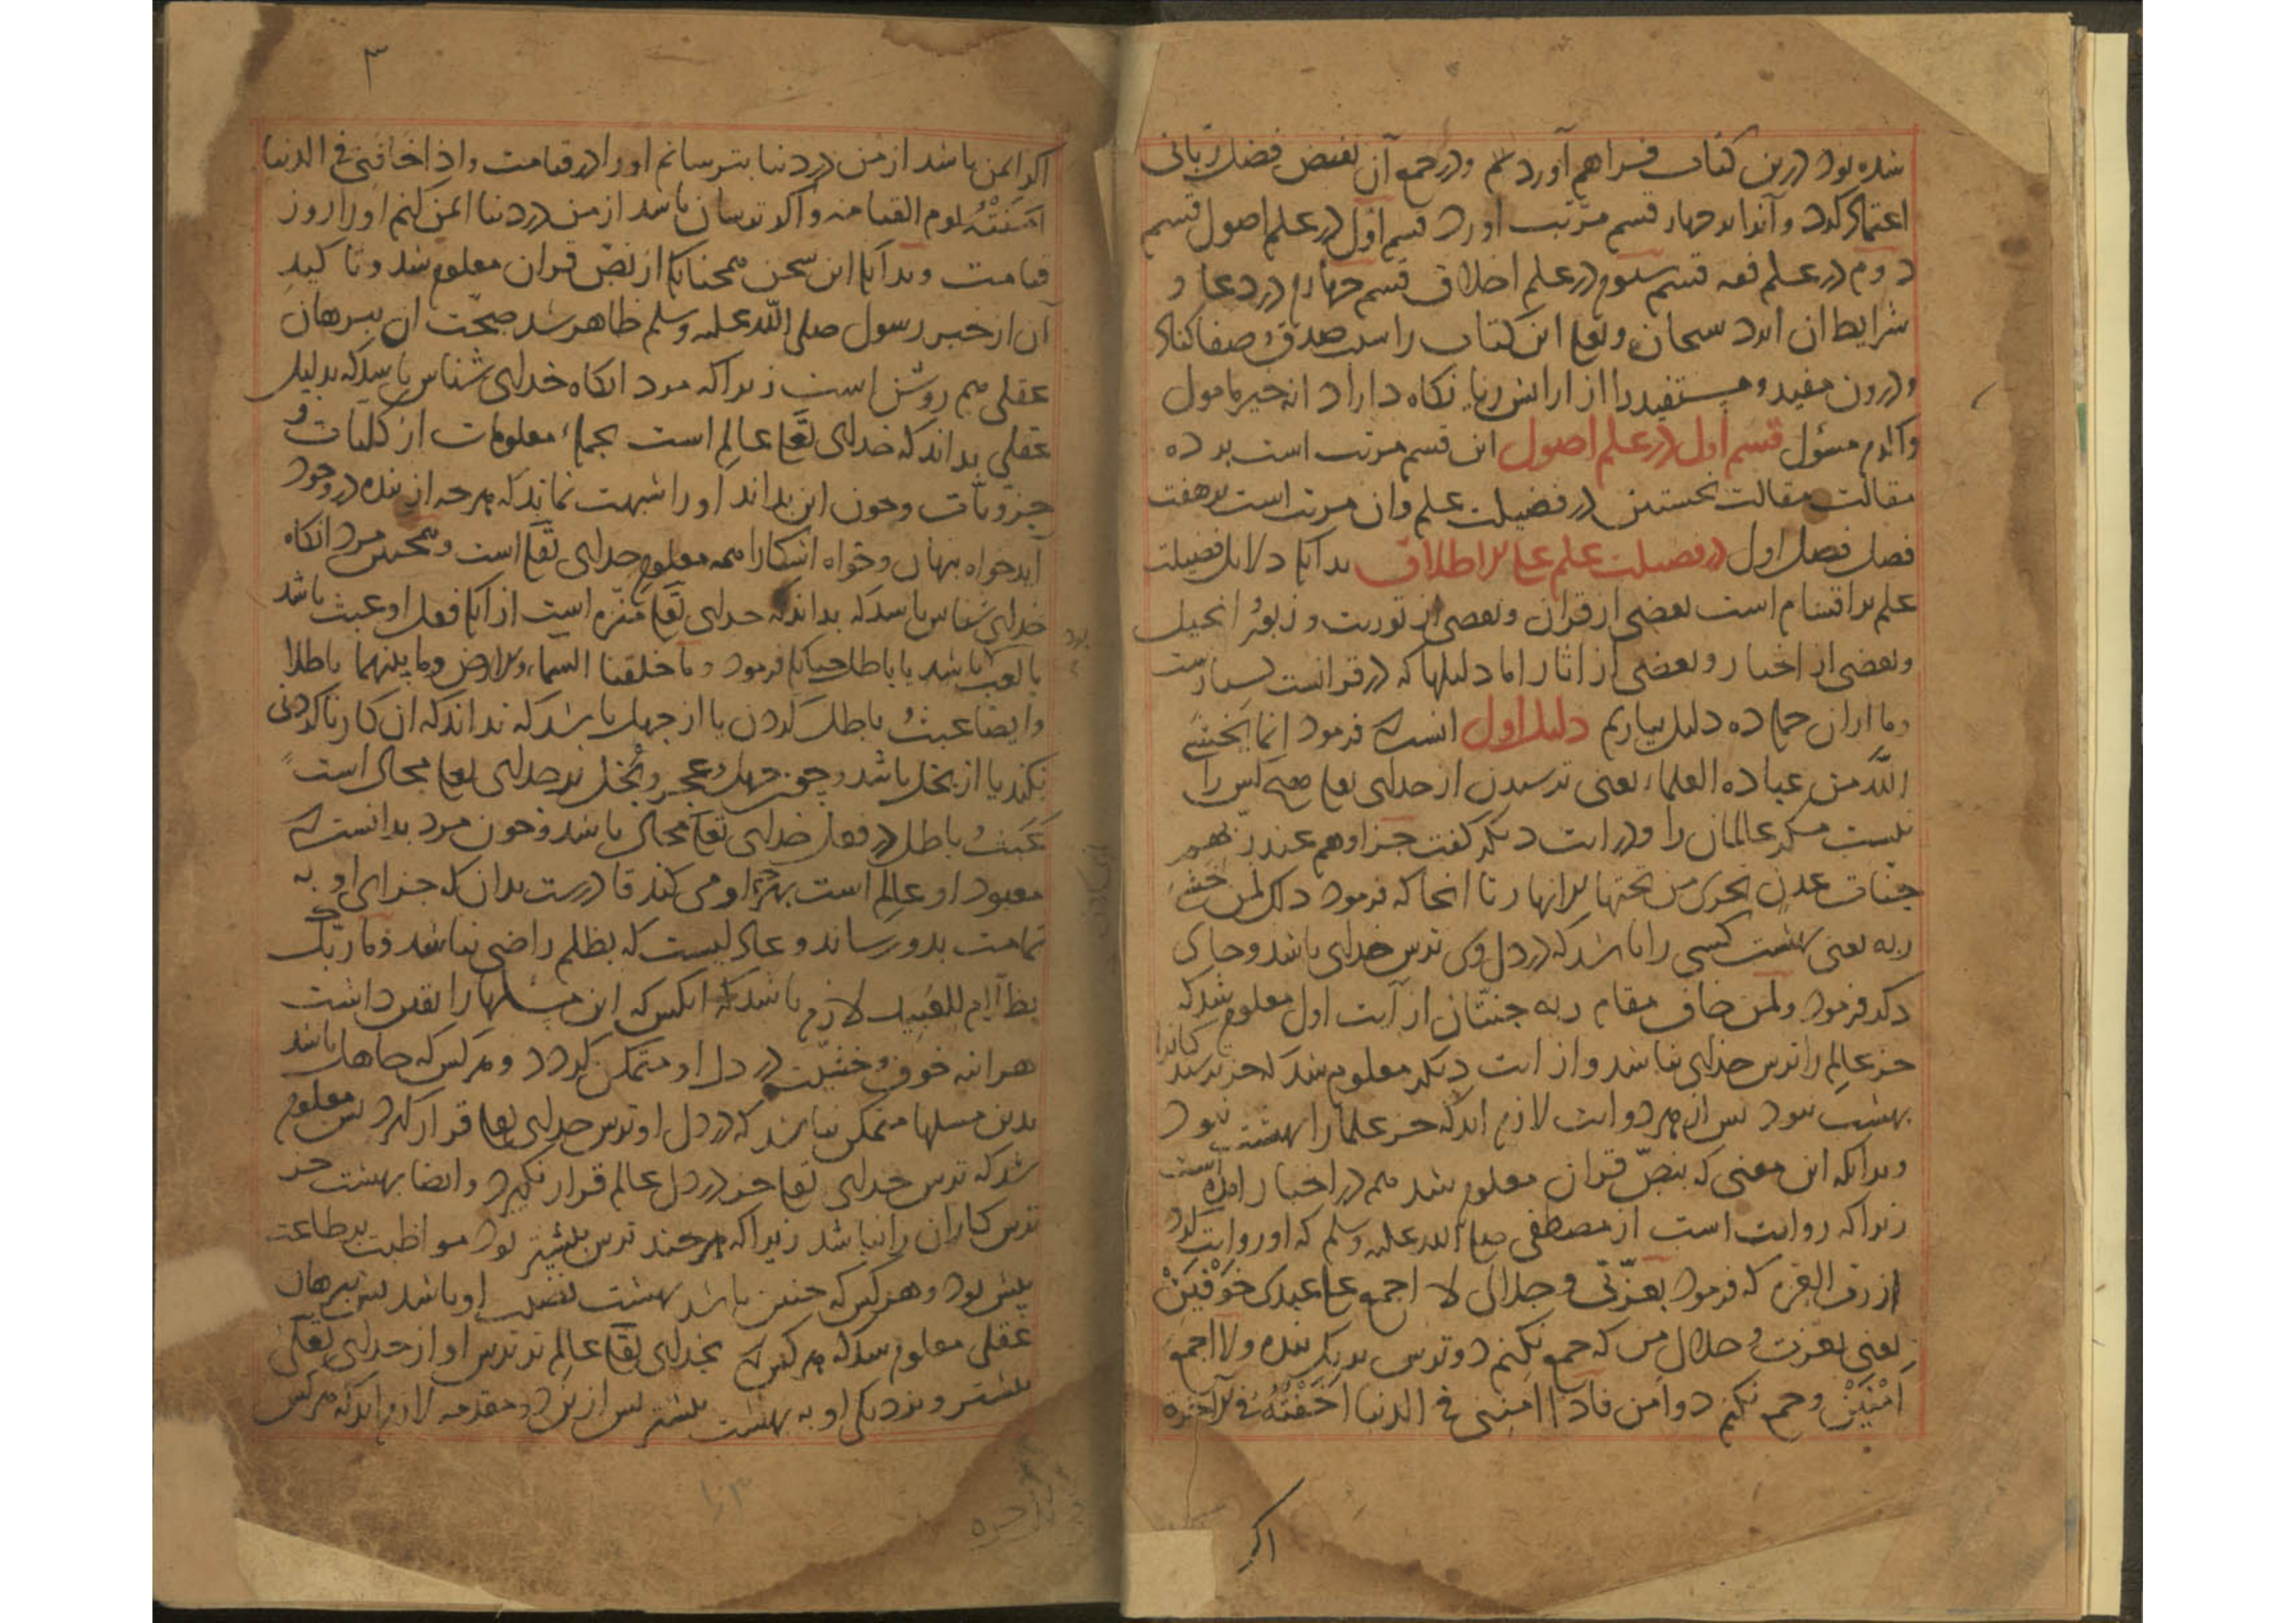 شده بود درین کتاب فراهم آوردم و در جمع آن بفیض فضل ربانی
اعتماد کرد و آنرا بر چهار قسم مرتب اورد قسم اول در علم اصول قسم
دوم در علم فقه قسم سوم در علم اخلاق قسم چهارم در دعا و
شرایط ان ایزد سبحانه وتعالی این کتاب را سبب صدق و صفا کناد
و درون مفید و مستفید را از ارایش ریا نگاه داراد انه خیر مامول
واکرم مسؤل قسم اول در علم اصول این قسم مرتب است بر ده
مقالت مقالت نخستین در فضیلت علم وان مرتب است بر هفت
فصل فصل اول در فضیلت علم علی الاطلاق بدانک دلایل فضیلت
علم بر اقسام است بعضی از قران و بعضی از توریت و زبور و انجیل
و بعضی از اخبار و بعضی از اثار اما دلیلها که در قرانست بسیارست
و ما ازان جمله ده دلیل بیاریم دلیل اول انست که فرمود إنما یخشی
الله من عباده العلماء یعنی ترسیدن از خدای تعالی هیچ کس را
نیست مگر عالمان را و در ایت دیگر گفت جزاوهم عند ربهم
جنات عدن تجری من تحتها الانهار تا انجا که فرمود ذلک لمن خشی
ربه یعنی بهشت کسی را باشد که در دل وی ترس خدای باشد و جای
دیگر فرمود ولمن خاف مقام ربه جنتان از آیت اول معلوم شد که
جز عالم را ترس خدای نباشد و از ایت دیگر معلوم شد که جز ترسکاران را
بهشت نبود پس از هر دو ایت لازم اید که جز علما را بهشت نبود
و بدانکه این معنی که بنص قران معلوم شد هم در اخبار امده است
زیرا که روایت است از مصطفی صلی الله علیه وسلم که او روایت کرد
از رب العزه که فرمود بعزتی و جلالی لا اجمع علی عبدی خوفین
یعنی بعزت و جلال من که جمع نکنم دو ترس بر یک بنده ولا اجمع
امنین و جمع نکنم دو امن فاذا امننی فی الدنیا اخفته فی الاخرة
اکر
۳
اکر ایمن باشد از من در دنیا بترسانم او را در قیامت واذا خافنی فی الدنیا
امنته یوم القیامه و اکر ترسان باشد از من در دنیا ایمن کنم او را روز
قیامت و بدانک این سخن همچنانک از نص قران معلوم شد و تاکید
آن از خبر رسول صلی الله علیه وسلم ظاهر شد صحت ان ببرهان
عقلی هم روشن است زیرا که مرد انگاه خدای شناس باشد که بدلیل
عقلی بداند که خدای تعالی عالم است بجمله معلومات از کلیات و
جزویات و چون این بداند او را شبهت نماند که هر چه از بنده در وجود
آید خواه پنهان و خواه اشکارا همه معلوم خدای تعالی است و همچنین مرد انگاه
خدای شناس باشد که بداند که خدای تعالی منزه است از انک فعل او عبث باشد
یا لعب باشد یا باطل چنانک فرمود وما خلقنا السماء والارض وما بینهما باطلا
وایضا عبث و باطل کردن یا از جهل باشد که نداند که ان کار ناکردنی
نکند یا از بخل باشد و چون جهل و عجز و بخل بر خدای تعالی محال است
عبث و باطل در فعل خدای تعالی محال باشد و چون مرد بدانست که
معبود او عالم است بهرچه او می کند قادرست بدان که جزای او به
تمامت بدو رساند و عادلیست که بظلم راضی نباشد وما ربک
بظلام للعبید لازم باشد که انکس که این مسلها را یقین داشت
هراینه خوف و خشیت در دل او متمکن گردد و هر کس که جاهل باشد
بدین مسلها متمکن نباشد که در دل او ترس خدای تعالی قرار گیرد پس معلوم
شد که ترس خدای تعالی جز در دل عالم قرار نگیرد و ایضا بهشت جز
ترس کاران را نباشد زیرا که هر چند ترس بیشتر بود مواظبت بر طاعت
بیش بود و هر کس که چنین باشد بهشت نصیب او باشد پس ببرهان
عقلی معلوم شد که هر کس که بخدای تعالی عالم تر ترس او از خدای تعالی
بیشتر و نزدیکی او به بهشت بیشتر پس از این دو مقدمه لازم اید که هر کس